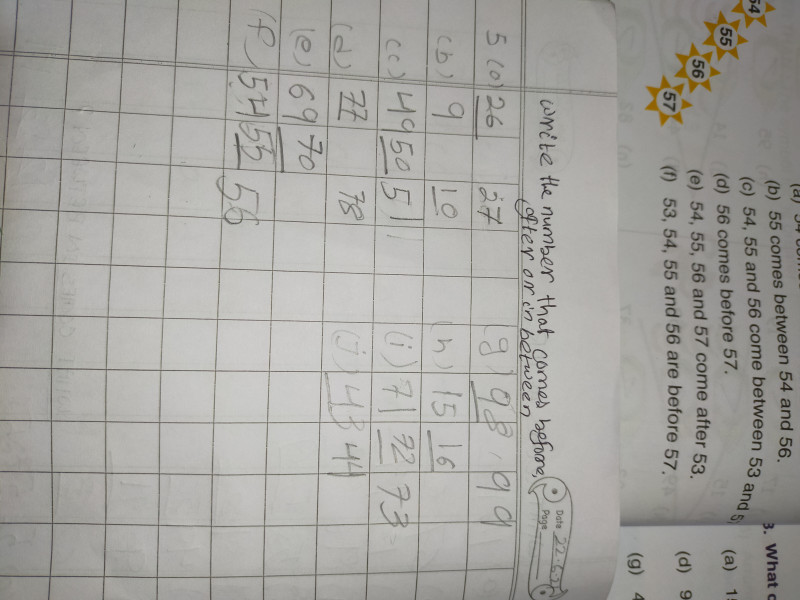 54
55
56
57
(b) 55 comes between 54 and 56.
(c) 54, 55 and 56 come between 53 and
(d) 56 comes before 57.
(e) 54, 55, 56 and 57 come after 53.
(f) 53, 54, 55 and 56 are before 57.
3. What
(a)
(d) 9
(g) 4
Date
Page
write the number that comes before,
after or in between
5 (a) 26 27
(b) 9 10
(c) 49 50 51
(d) 77 78
(e) 69 70
(f) 54 55 56
(g) 98, 99
(h) 15 16
(i) 71 72 73
(j) 43 44